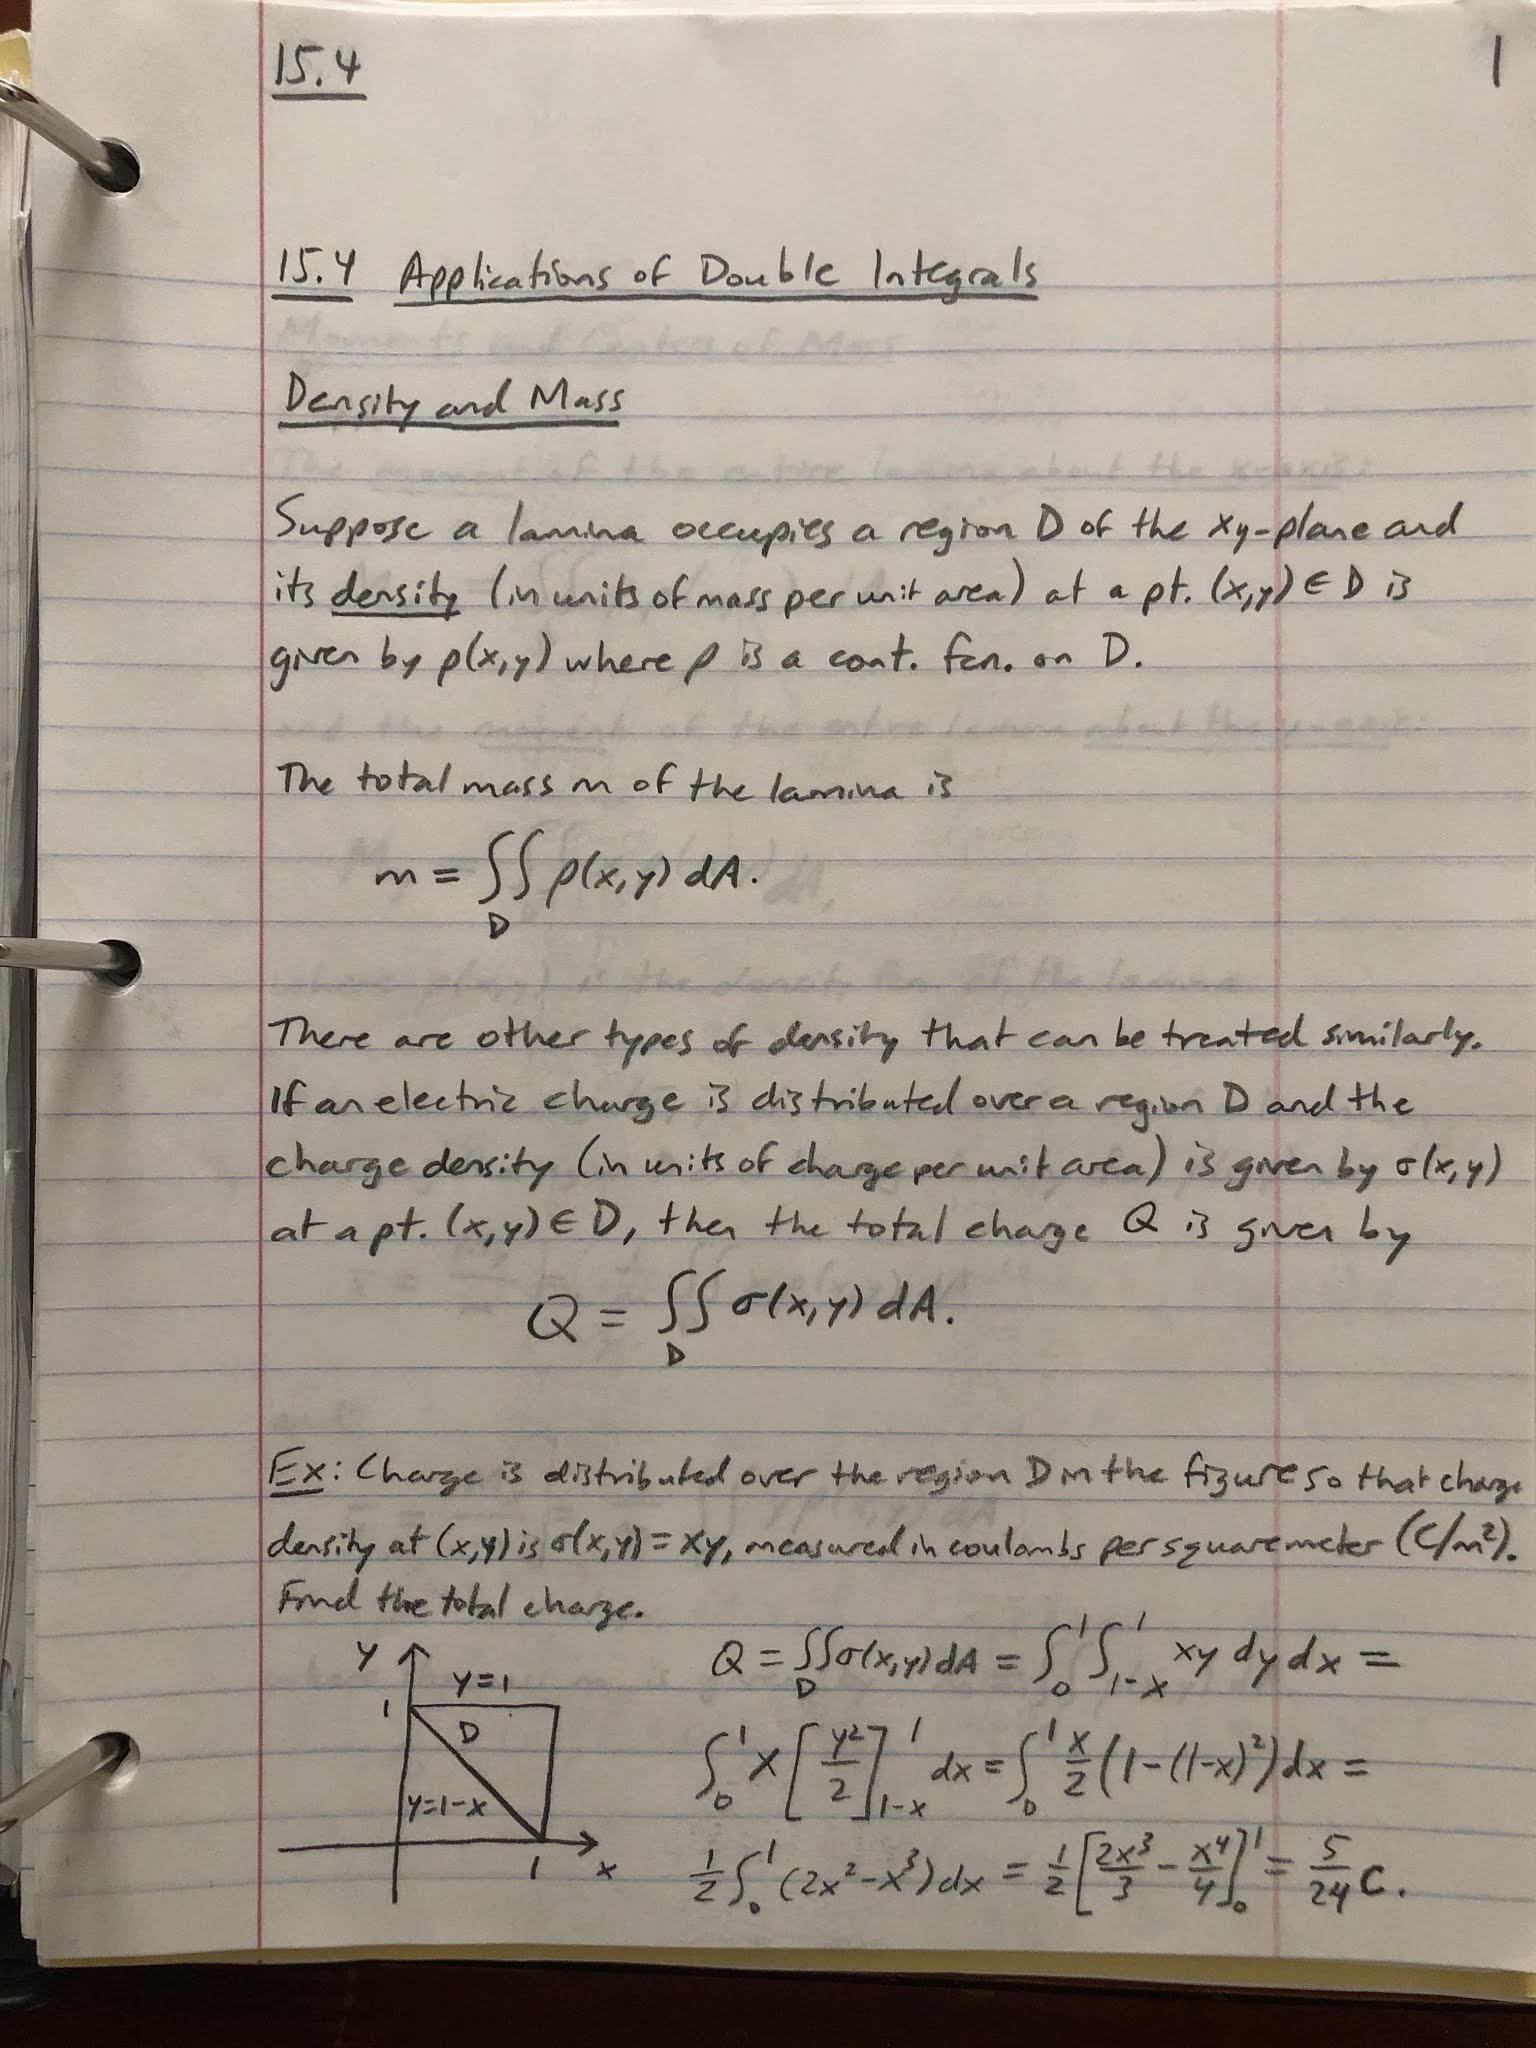 15.4
1
15.4 Applications of Double Integrals
Density and Mass
Suppose a lamina occupies a region D of the xy-plane and
its density (in units of mass per unit area) at a pt. (x,y) ∈ D is
given by ρ(x,y) where ρ is a cont. fcn. on D.
The total mass m of the lamina is
m = ∬_D ρ(x,y) dA.
There are other types of density that can be treated similarly.
If an electric charge is distributed over a region D and the
charge density (in units of charge per unit area) is given by σ(x,y)
at a pt. (x,y) ∈ D, then the total charge Q is given by
Q = ∬_D σ(x,y) dA.
Ex: Charge is distributed over the region D in the figure so that charge
density at (x,y) is σ(x,y) = xy, measured in coulombs per square meter (C/m²).
Find the total charge.
y
y=1
1
D
y=1-x
1
x
Q = ∬_D σ(x,y) dA = ∫_0^1 ∫_{1-x}^1 xy dy dx =
∫_0^1 x [y²/2]_{1-x}^1 dx = ∫_0^1 x/2 (1-(1-x)²) dx =
1/2 ∫_0^1 (2x²-x³) dx = 1/2 [2x³/3 - x⁴/4]_0^1 = 5/24 C.